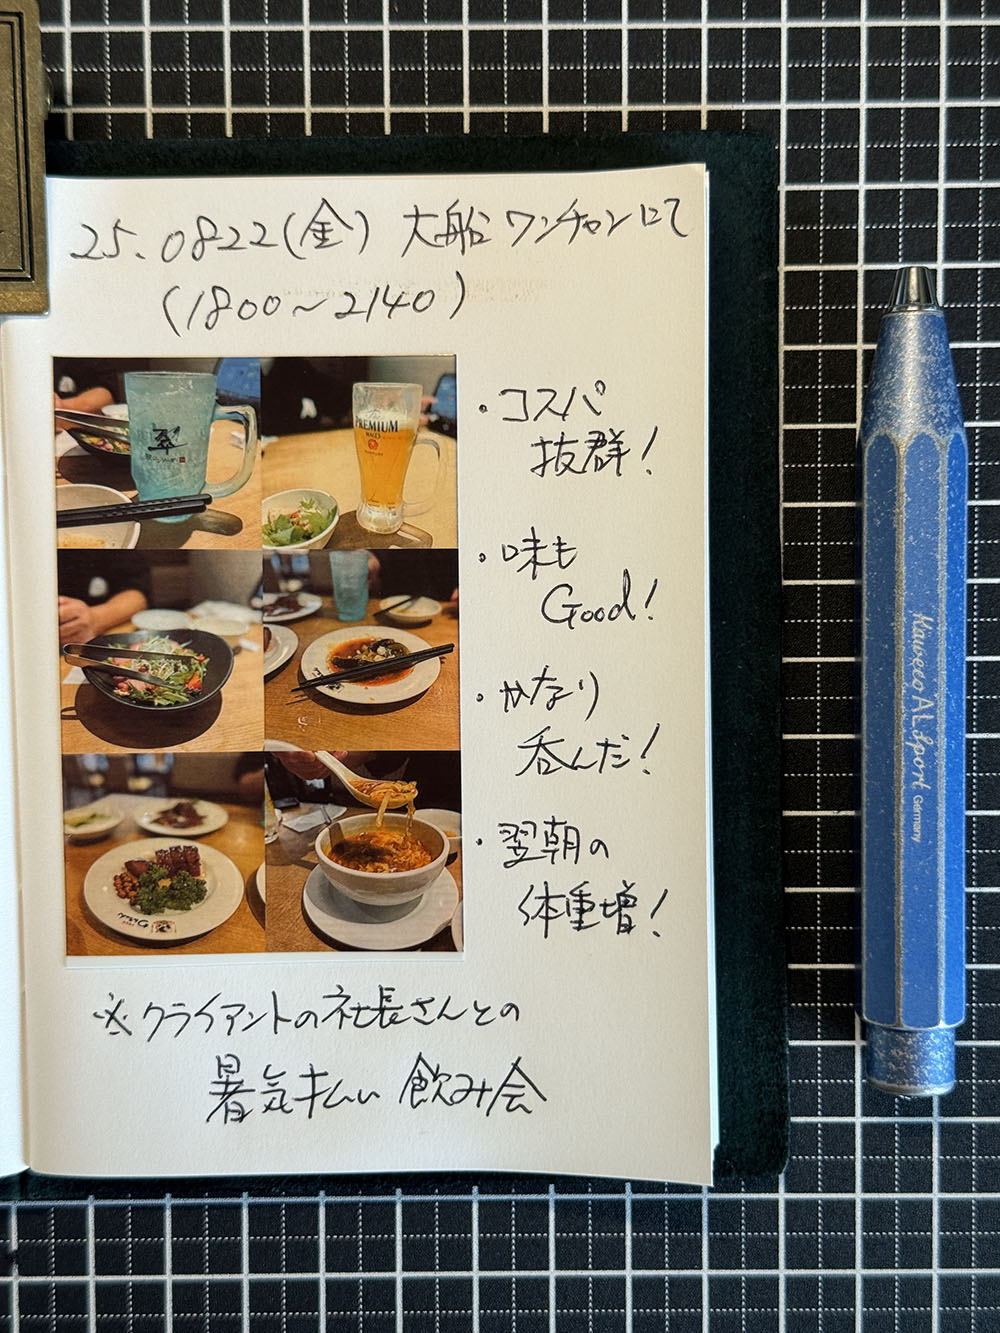 25.0822(金) 大船ワンチャンにて
(1800〜2140)
・コスパ
抜群!
・味も
Good!
・かなり
呑んだ!
・翌朝の
体重増!
※クライアントの社長さんとの
暑気払い 飲み会
PREMIUM
MALT'S
Kaweco AL Sport Germany